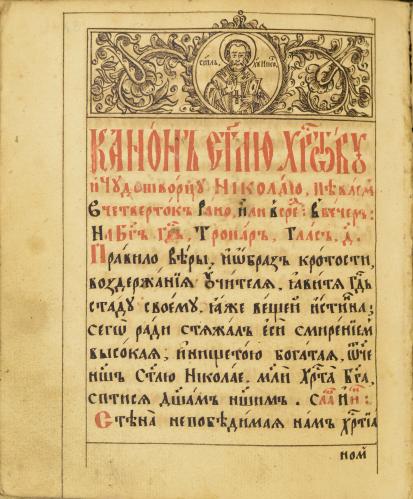 СТ҃ИЛЬ НИКО
КАНО́НЪ СТ҃ЛЮ ХРТ҃О́ВУ
и҆ Чудотво́рцу НИКОЛА́Ю, пѣва́ем
в четверто́къ Ра́но,
На Бг҃ъ Гд҃ь, Тропа́рь, Гла́съ, д҃.
Пра́вило вѣ́ры, и҆ ѡ҆́бразъ кро́тости,
воздержа́нїѧ ᲂу҆чи́телѧ, ꙗ҆ви́ тѧ Гд҃ь
ста́ду своемꙋ̀, ꙗ҆́же веще́й и҆́стина;
сегѡ̀ ра́ди стѧжа́лъ є҆сѝ смире́нїем
высо́каѧ; и҆ нището́ю бога́таѧ, ѿ́че
нш҃ъ Ст҃лю Никола́е, молѝ Хрⷭ҇та̀ Бг҃а,
спⷭ҇ти́сѧ дш҃а́мъ на́шимъ. Сла́, И҆ ны́:
Стѣна̀ непобѣди́маѧ на́мъ хрⷭ҇тїа́
ном